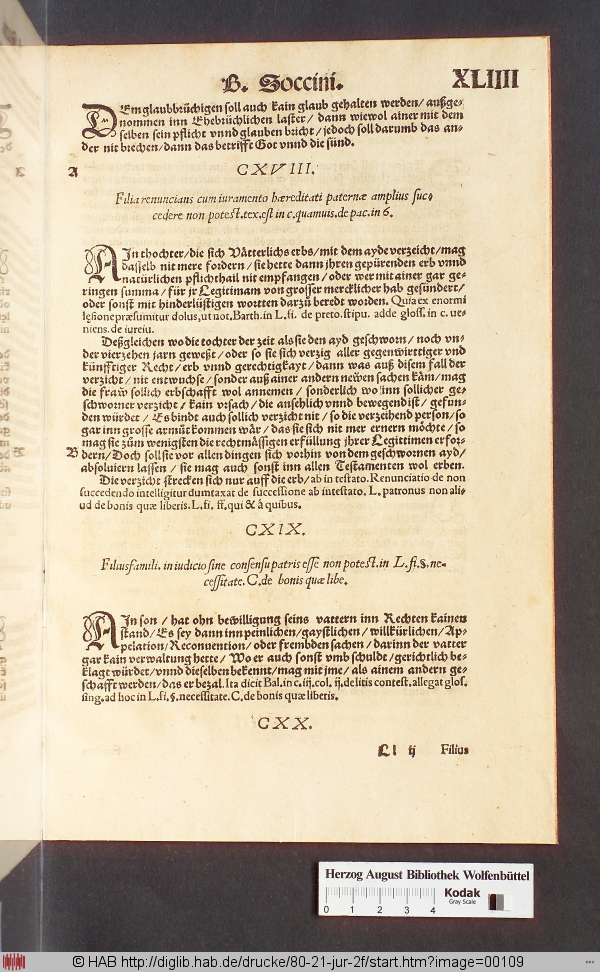 B. Soccini. XLIIII
DEm glaubbrüchigen soll auch kain glaub gehalten werden / außge-
nommen inn Ehebrüchlichen laster / dann wiewol ainer mit dem
selben sein pflicht vnnd glauben bricht / jedoch soll darumb das an-
der nit brechen / dann das betrifft Got vnnd die sünd.
A CXVIII.
Filia renuncians cum iuramento hæreditati paternæ amplius suc-
cedere non potest. tex. est in c. quamuis. de pac. in 6.
AIn thochter / die sich Vätterlichs erbs / mit dem ayde verzeicht / mag
dasselb nit mere fordern / sie hette dann jhren gepürenden erb vnnd
natürlichen pflichthail nit empfangen / oder wer mit ainer gar ge-
ringen summa / für jr Legitimam von grosser mercklicher hab gesündert /
oder sonst mit hinderlüstigen wortten darzü beredt worden. Quia ex enormi
læsione præsumitur dolus, ut not. Barth. in L. si. de preto. stipu. adde gloss. in c. ue-
niens. de iureiu.
Deßgleichen wo die tochter der zeit als sie den ayd geschworn / noch vn-
der vierzehen jarn geweßt / oder so sie sich verzig aller gegenwirttiger vnd
künfftiger Recht / erb vnnd gerechtigkayt / dann was auß disem fall der
verzicht / nit entwuchse / sonder auß ainer andern newen sachen käm / mag
die fraw sollich erbschafft wol annemen / sonderlich wo inn sollicher ge-
schworner verzicht / kain vrsach / die ansehlich vnnd bewegend ist / gefun-
den würdet / Es bindt auch sollich verzicht nit / so die verzeihend person / so
gar inn grosse armüt kommen wär / das sie sich nit mer ernern möchte / so
mag sie züm wenigsten die rechtmässigen erfüllung jhrer Legittimen erfor-
B dern / Doch soll sie vor allen dingen sich vorhin von dem geschwornen ayd /
absoluiern lassen / sie mag auch sonst inn allen Testamenten wol erben.
Die verzicht strecken sich nur auff die erb / ab intestato. Renunciatio de non
succedendo intelligitur dumtaxat de successione ab intestato, L. patronus non ali-
ud de bonis quæ liberis. L. fi. ff. qui & à quibus.
CXIX.
Filiusfamili. in iudicio sine consensu patris esse non potest. in L. fi. §. ne-
cessitate. C. de bonis quæ libe.
AIn son / hat ohn bewilligung seins vattern inn Rechten kainen
stand / Es sey dann inn peinlichen / gaystlichen / willkürlichen / Ap-
pelation / Reconuention / oder frembden sachen / darinn der vatter
gar kain verwaltung hette / Wo er auch sonst vmb schuldt / gerichtlich be-
klagt würdet / vnnd dieselben bekennt / mag mit jme / als ainem andern ge-
schafft werden / das er bezal. Ita dicit Bal. in c. iij. col. ij. de litis contest. allegat glos.
sing. ad hoc in L. fi. §. necessitate. C. de bonis quæ liberis.
CXX.
Ll ij Filius
Herzog August Bibliothek Wolfenbüttel
0 1 2 3 4 Kodak
Gray Scale
© HAB http://diglib.hab.de/drucke/80-21-jur-2f/start.htm?image=00109